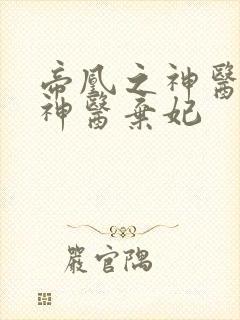 帝凰之神醫
神醫棄妃
嚴官隅